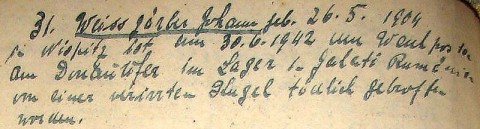 31. Weissgärber Johann geb. 26.5.1904
in Wispitz ist am 30.6.1942 um
am Donauufer im Lager in Galati Rumänien
von einer verirrten Kugel tödlich getroffen
worden.